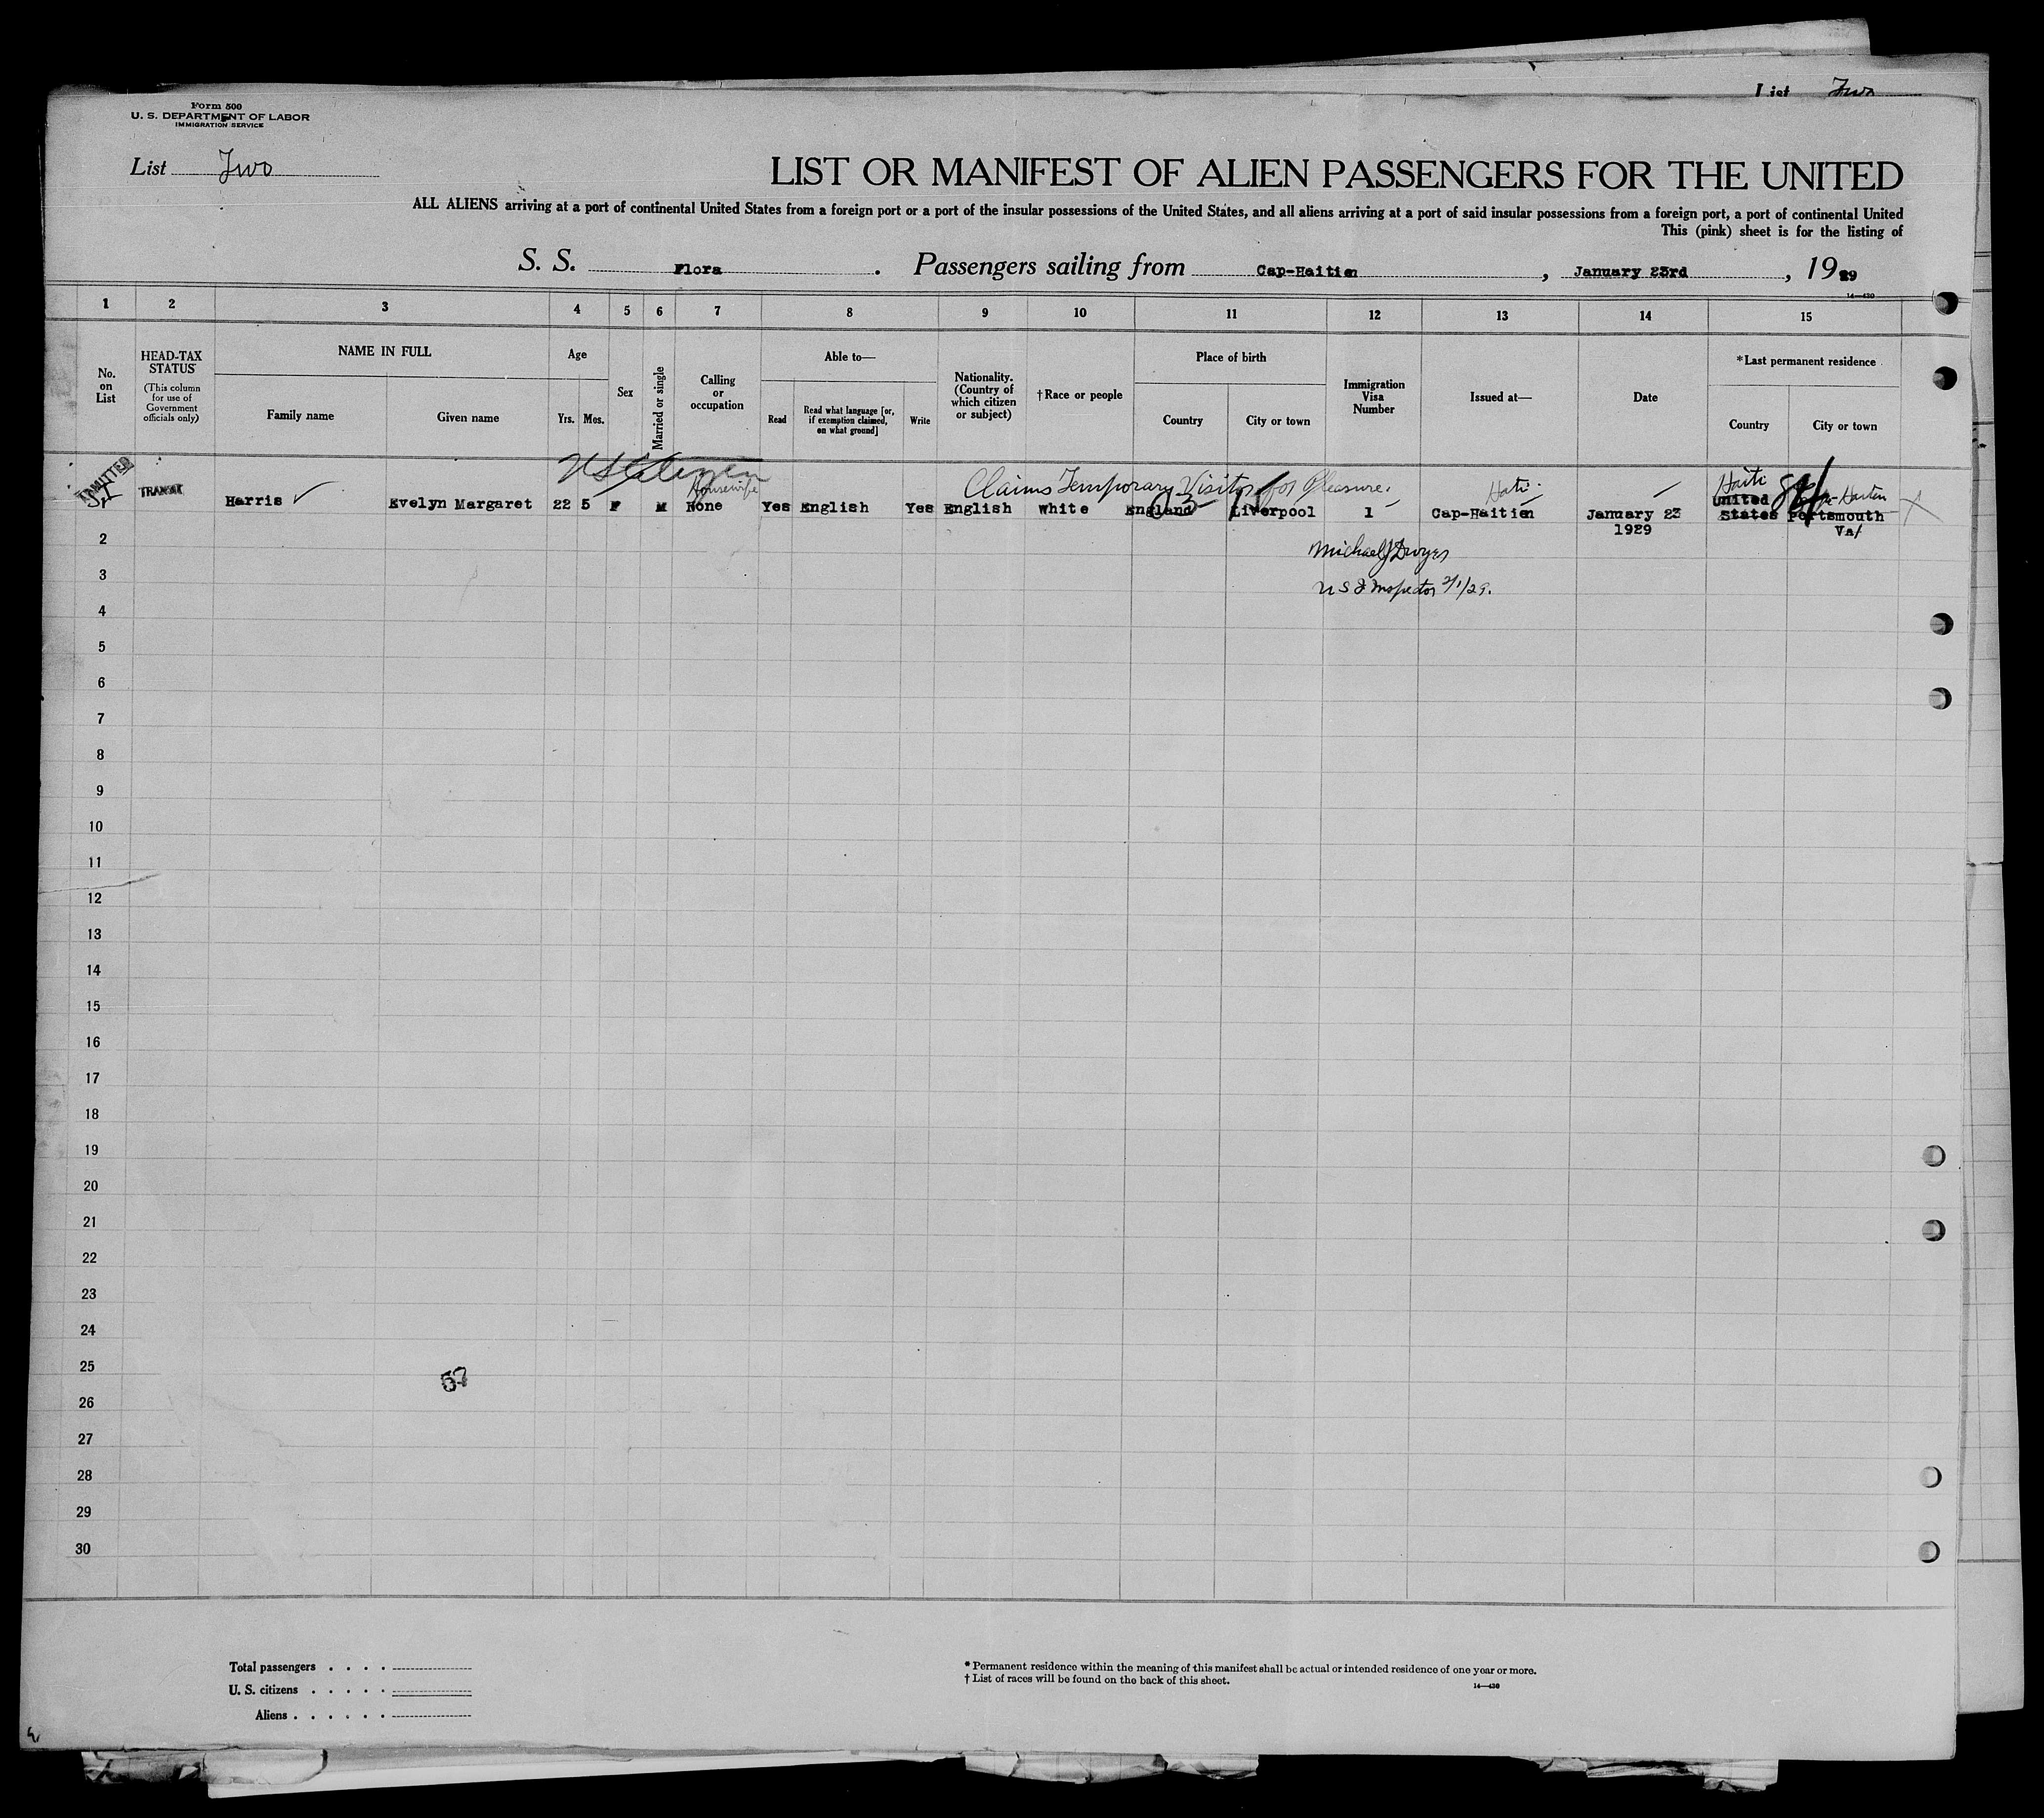 List Two
Form 500
U. S. DEPARTMENT OF LABOR
IMMIGRATION SERVICE
List Two
LIST OR MANIFEST OF ALIEN PASSENGERS FOR THE UNITED
ALL ALIENS arriving at a port of continental United States from a foreign port or a port of the insular possessions of the United States, and all aliens arriving at a port of said insular possessions from a foreign port, a port of continental United
This (pink) sheet is for the listing of
S. S. Flora . Passengers sailing from Cap-Haitien , January 23rd , 1929
14—430
1 2 3 4 5 6 7 8 9 10 11 12 13 14 15
No. on List
HEAD-TAX STATUS
(This column for use of Government officials only)
NAME IN FULL
Family name
Given name
Age
Yrs. Mos.
Sex
Married or single
Calling or occupation
Able to—
Read
Read what language [or, if exemption claimed, on what ground]
Write
Nationality. (Country of which citizen or subject)
†Race or people
Place of birth
Country
City or town
Immigration Visa Number
Issued at—
Date
*Last permanent residence
Country
City or town
US Citizen
ADMITTED
TRANSIT
Housewife
Claims Temporary Visitor for Pleasure.
Haiti
Harris ✓ Evelyn Margaret 22 5 F M None Yes English Yes English White England Liverpool 1 Cap-Haitien January 23 1929 United States Portsmouth Va/
2
Michael J Dwyer
3
U S I Inspector 2/1/29.
4
5
6
7
8
9
10
11
12
13
14
15
16
17
18
19
20
21
22
23
24
25
57
26
27
28
29
30
Total passengers . . . .
U. S. citizens . . . . .
Aliens . . . . . .
* Permanent residence within the meaning of this manifest shall be actual or intended residence of one year or more.
† List of races will be found on the back of this sheet.
14—430